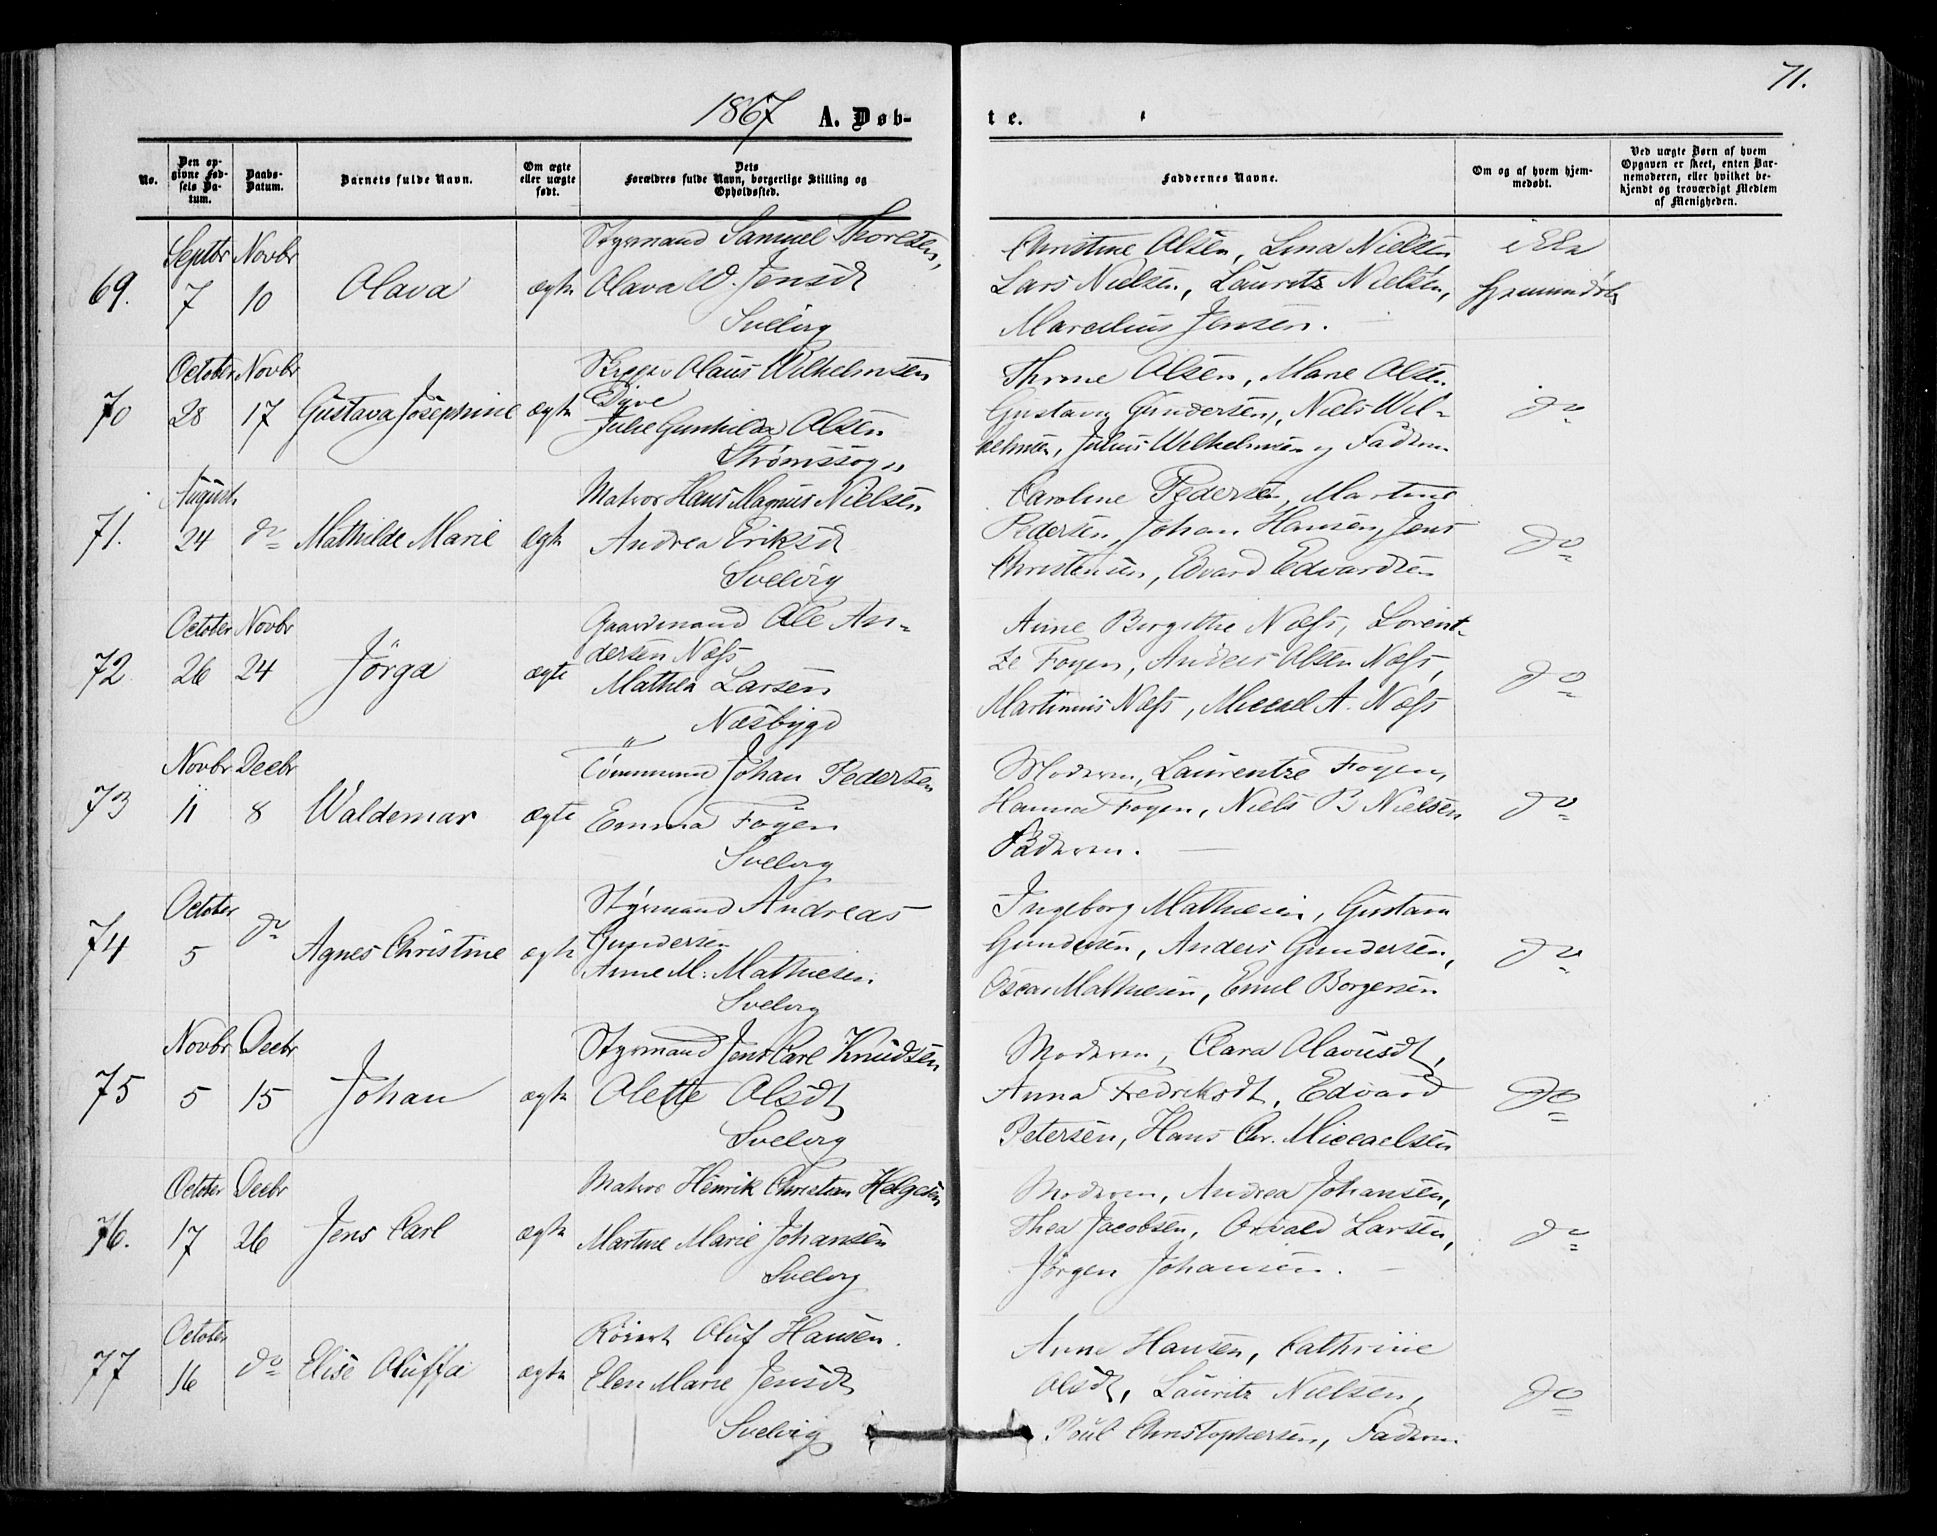 71.
1867 A. Døb- te.
No. Den opgivne Fødsels Datum. Daabs-Datum. Barnets fulde Navn. Om ægte eller uægte født. Dets Forældres fulde Navn, borgerlige Stilling og Opholdssted. Faddernes Navne. Om og af hvem hjemmedøbt. Ved uægte Børn af hvem Opgaven er skeet, enten Barnemoderen, eller hvilket bekjendt og troværdigt Medlem af Menigheden.
Septbr Novbr Styrmand Samuel Thoresen, Christine Olsen, Lina Nielsen ikke
69. 7 10 Olava ægte Olava W. Jensdt Lars Nielsen, Lauritz Nielsen, hjemmedøbt
Svelvig Marcelius Jensen.
October Novbr Skipper Olaus Wilhelmsen Thrine Olsen, Marie Olsen
70 28 17 Gustava Josephine ægte Dyve Gustava Gundersen, Niels Wil- do
Julie Gunhilde Olsen helmsen, Julius Wilhelmsen og Faderen
Strømssogn
August Matros Hans Magnus Nielsen Caroline Pedersen, Martine
71. 24 do Mathilde Marie ægte Andrea Eriksdt Pedersen, Johan Hansen, Jens do
Svelvig Christensen, Edvard Edvardsen
October Novbr Gaardmand Ole An- Anne Birgithe Næss, Lorent-
72 26 24 Jörga ægte dersen Næss ze Foyen, Anders Olsen Næss, do
Mathea Larsen Martinius Næss, Miccael A. Næss
Næsbygd
Novbr Decbr Tömmermand Johan Pedersen Moderen, Laurentze Foyen,
73 11 8 Waldemar ægte Emma Foyen Hanna Foyen, Niels B Nielsen do
Svelvig Faderen.
October Styrmand Andreas Ingeborg Mathiesen, Gustava
74 5 do Agnes Christine ægte Gundersen Gundersen, Anders Gundersen, do
Anne M. Mathiesen Oscar Mathiesen, Emil Borgersen
Svelvig
Novbr Decbr Styrmand Jens Carl Knudsen Moderen, Clara Olavusdt,
75 5 15 Johan ægte Olette Olsdt Anna Fredriksdt, Edvard do
Svelvig Petersen, Hans Chr. Miccaelsen
October Decbr Matros Henrik Christian Helgesen Moderen, Andrea Johansen,
76. 17 26 Jens Carl ægte Martine Marie Johansen Thea Jacobsen, Osvald Larsen, do
Svelvig Jörgen Johansen.
October Röiert Oluf Hansen. Anne Hansen, Cathrine
77 16 do Elise Oluffa ægte Elen Marie Jensdt Olsdt, Lauritz Nielsen, do
Svelvig Poul Christophersen, Faderen.